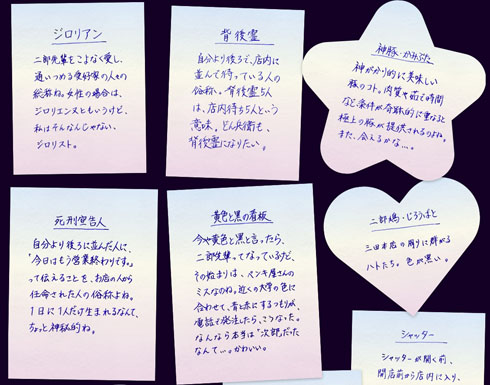 ジロリアン
二郎先輩をこよなく愛し、
通いつめる愛好家の人々の
総称ね。女性の場合は、
ジロリエンヌともいうけど、
私はそんなんじゃない、
ジロリスト。
背後霊
自分より後ろで、店内に
並んで待っている人の
俗称。背後霊5人
は、店内待ち5人という
意味。どん兵衛も、
背後霊になりたい。
神豚・かみぶた
神がかり的に美味しい
豚のコト。肉質や茹で時間
など条件が奇跡的に重なると
極上の豚が提供されるのよね。
また、会えるかな…。
死刑宣告人
自分より後ろに並んだ人に、
"今日はもう営業終わりです。"
って伝えることを、お店の人から
任命された人の俗称よね。
1日に1人だけ生まれるなんて、
ちょっと神秘的ね。
黄色と黒の看板
今や黄色と黒と言ったら、
二郎先輩ってなっているけど、
その始まりは、ペンキ屋さんの
ミスなのね。近くの大学の色に
合わせて、青と赤にするつもりが、
電話で発注したら、こうなった。
なんなら本当は"次郎"だった
なんてぃ。かわいい。
二郎鳩・じろうばと
三田本店の周りに群がる
ハトたち。色が黒い。
シャッター
シャッターが開く前、
開店前から店内に入り、